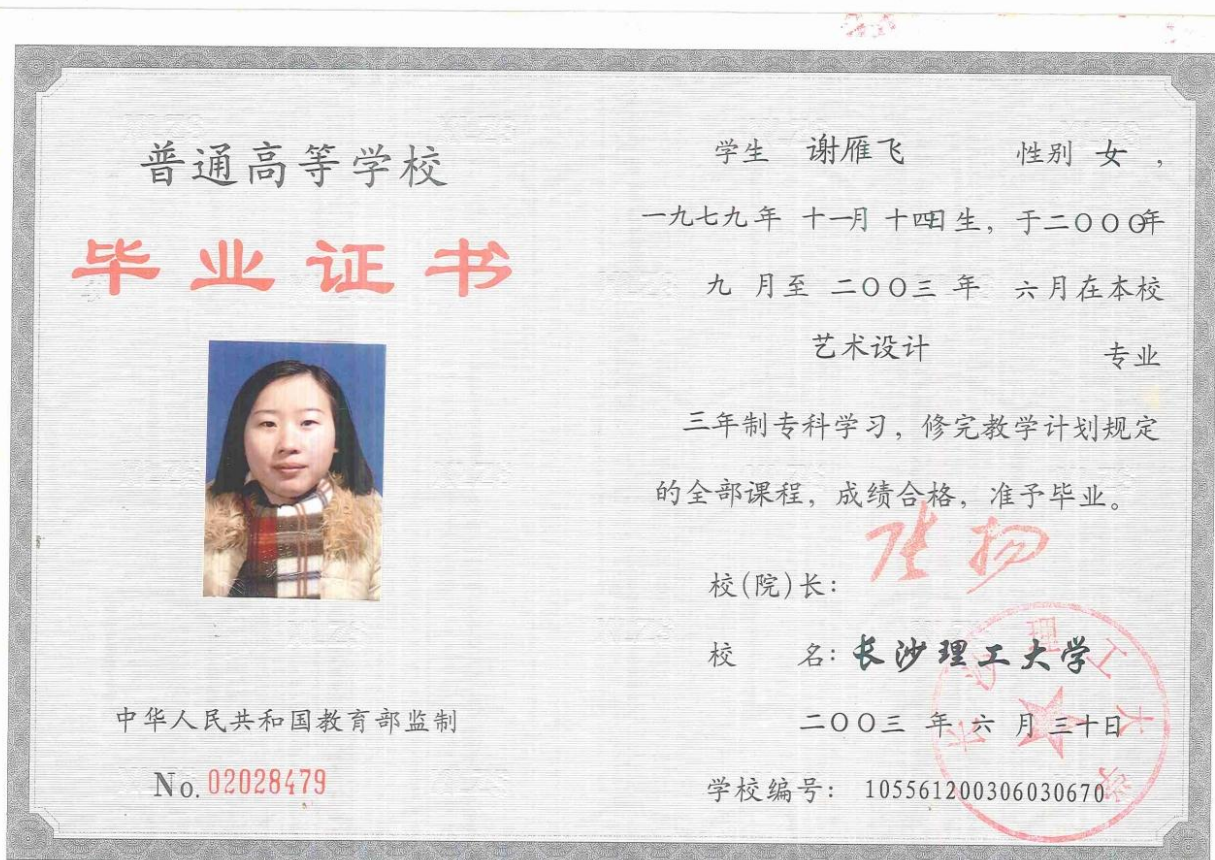 普通高等学校
毕业证书
中华人民共和国教育部监制
No. 02028479
学生 谢雁飞 性别 女 ,
一九七九年 十一月 十四日生, 于二〇〇〇年
九 月至 二〇〇三 年 六月在本校
艺术设计 专业
三年制专科学习, 修完教学计划规定
的全部课程, 成绩合格, 准予毕业。
校(院)长: 张扬
校 名: 长沙理工大学
二〇〇三 年 六 月 三十日
学校编号: 105561200306030670
长沙理工大学